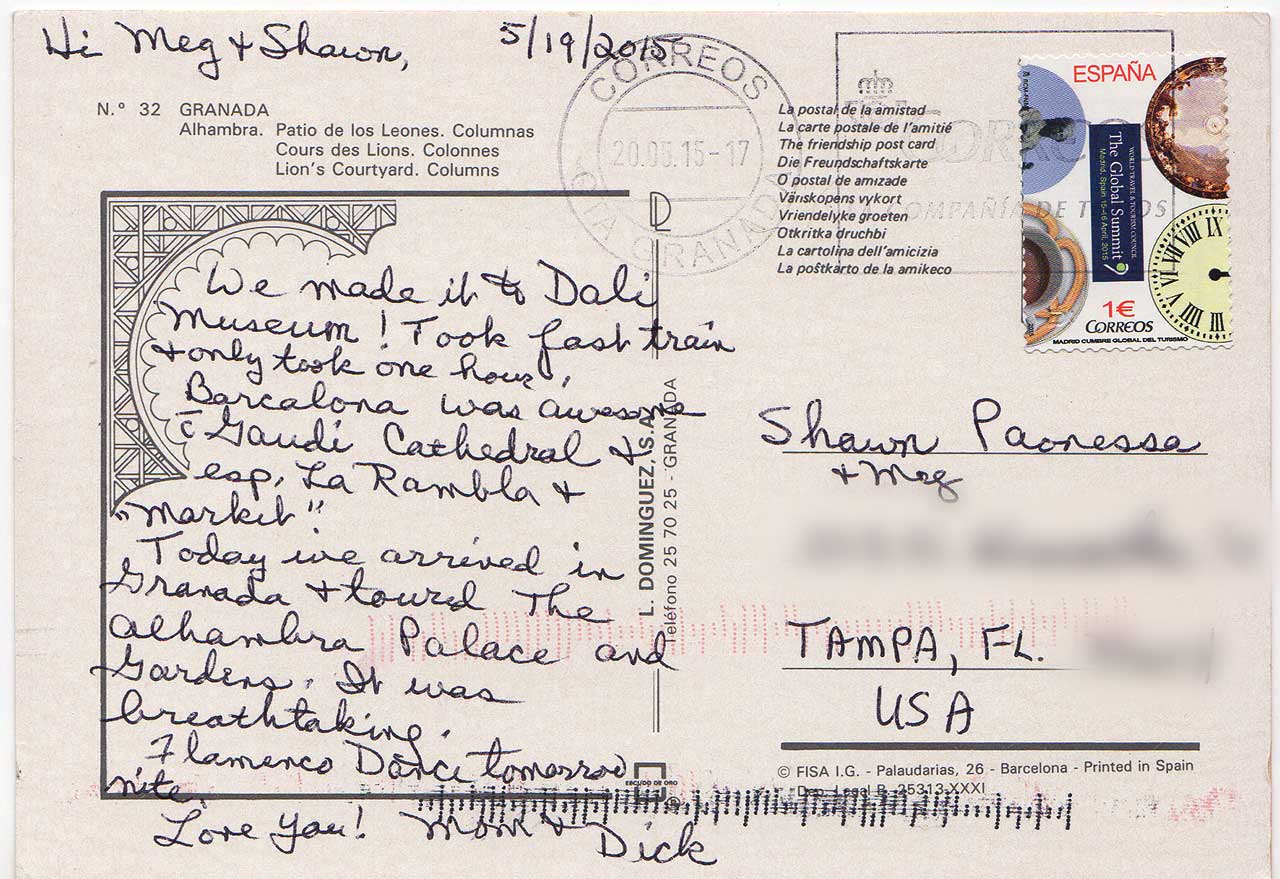 Hi Meg + Shawn,
5/19/2015
N.º 32 GRANADA
Alhambra. Patio de los Leones. Columnas
Cours des Lions. Colonnes
Lion's Courtyard. Columns
We made it to Dali
Museum! Took fast train
+ only took one hour.
Barcalona was awesome
c̄ Gaudi Cathedral +
esp. La Rambla +
"Market".
Today we arrived in
Granada + toured The
alhambra Palace and
Gardens. It was
breathtaking.
Flamenco Dance tomorrow
nite.
Love You! Mom + Dick
L. DOMINGUEZ, S.A.
Teléfono 25 70 25 - GRANADA
ESCUDO DE ORO
®
CORREOS
20.05.15-17
GRANADA
La postal de la amistad
La carte postale de l'amitié
The friendship post card
Die Freundschaftskarte
O postal de amizade
Vänskopens vykort
Vriendelyke groeten
Otkritka druchbi
La cartolina dell'amicizia
La poŝtkarto de la amikeco
CORREOS
COMPAÑÍA DE TODOS
ESPAÑA
WORLD TRAVEL & TOURISM COUNCIL
The Global Summit
Madrid, Spain 15-16 April, 2015
VI VII VIII IX
V IIII III
1€
CORREOS
MADRID CUMBRE GLOBAL DEL TURISMO
Shawn Paonessa
+ Meg
TAMPA, FL.
USA
© FISA I.G. - Palaudarias, 26 - Barcelona - Printed in Spain
Dep. Legal B. 25313-XXXI